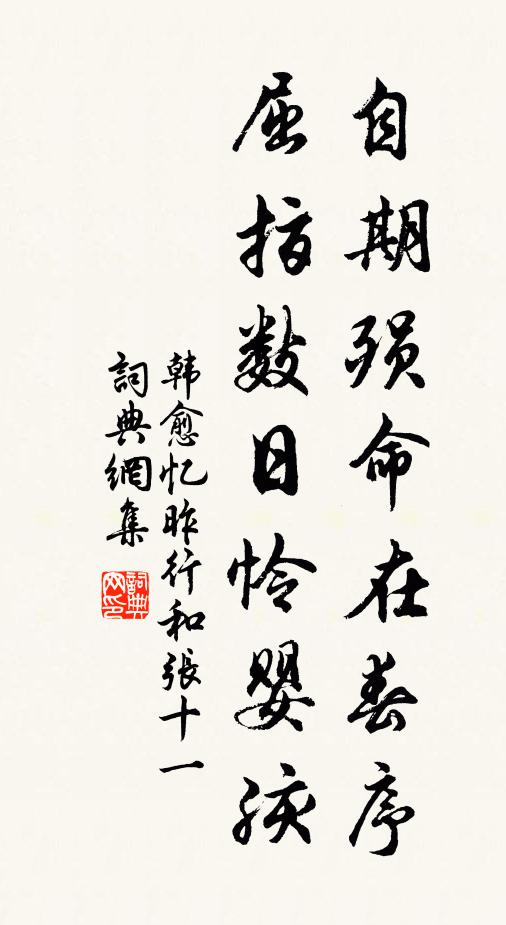 自期殒命在春序
屈指数日怜婴孩
韩愈忆昨行和張十一
詞典網集
詞典网印